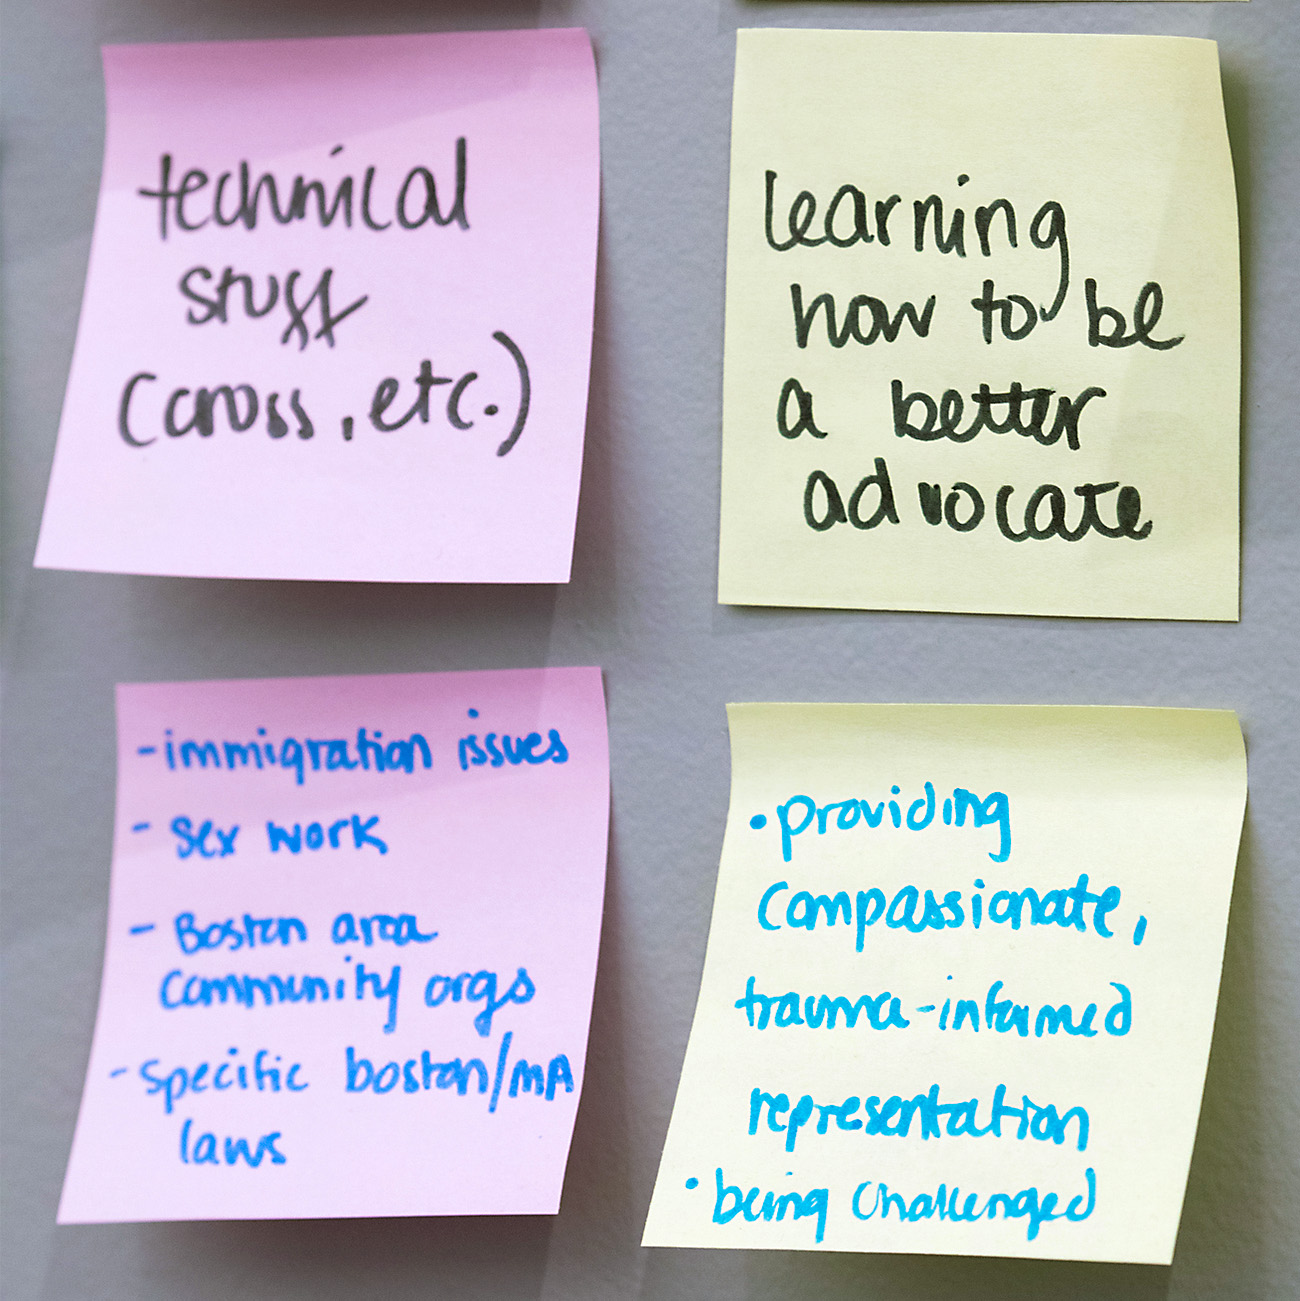 technical
stuff
(cross, etc.)
learning
how to be
a better
advocate
- immigration issues
- sex work
- Boston area
community orgs
- specific boston/MA
laws
• providing
compassionate,
trauma-informed
representation
• being challenged